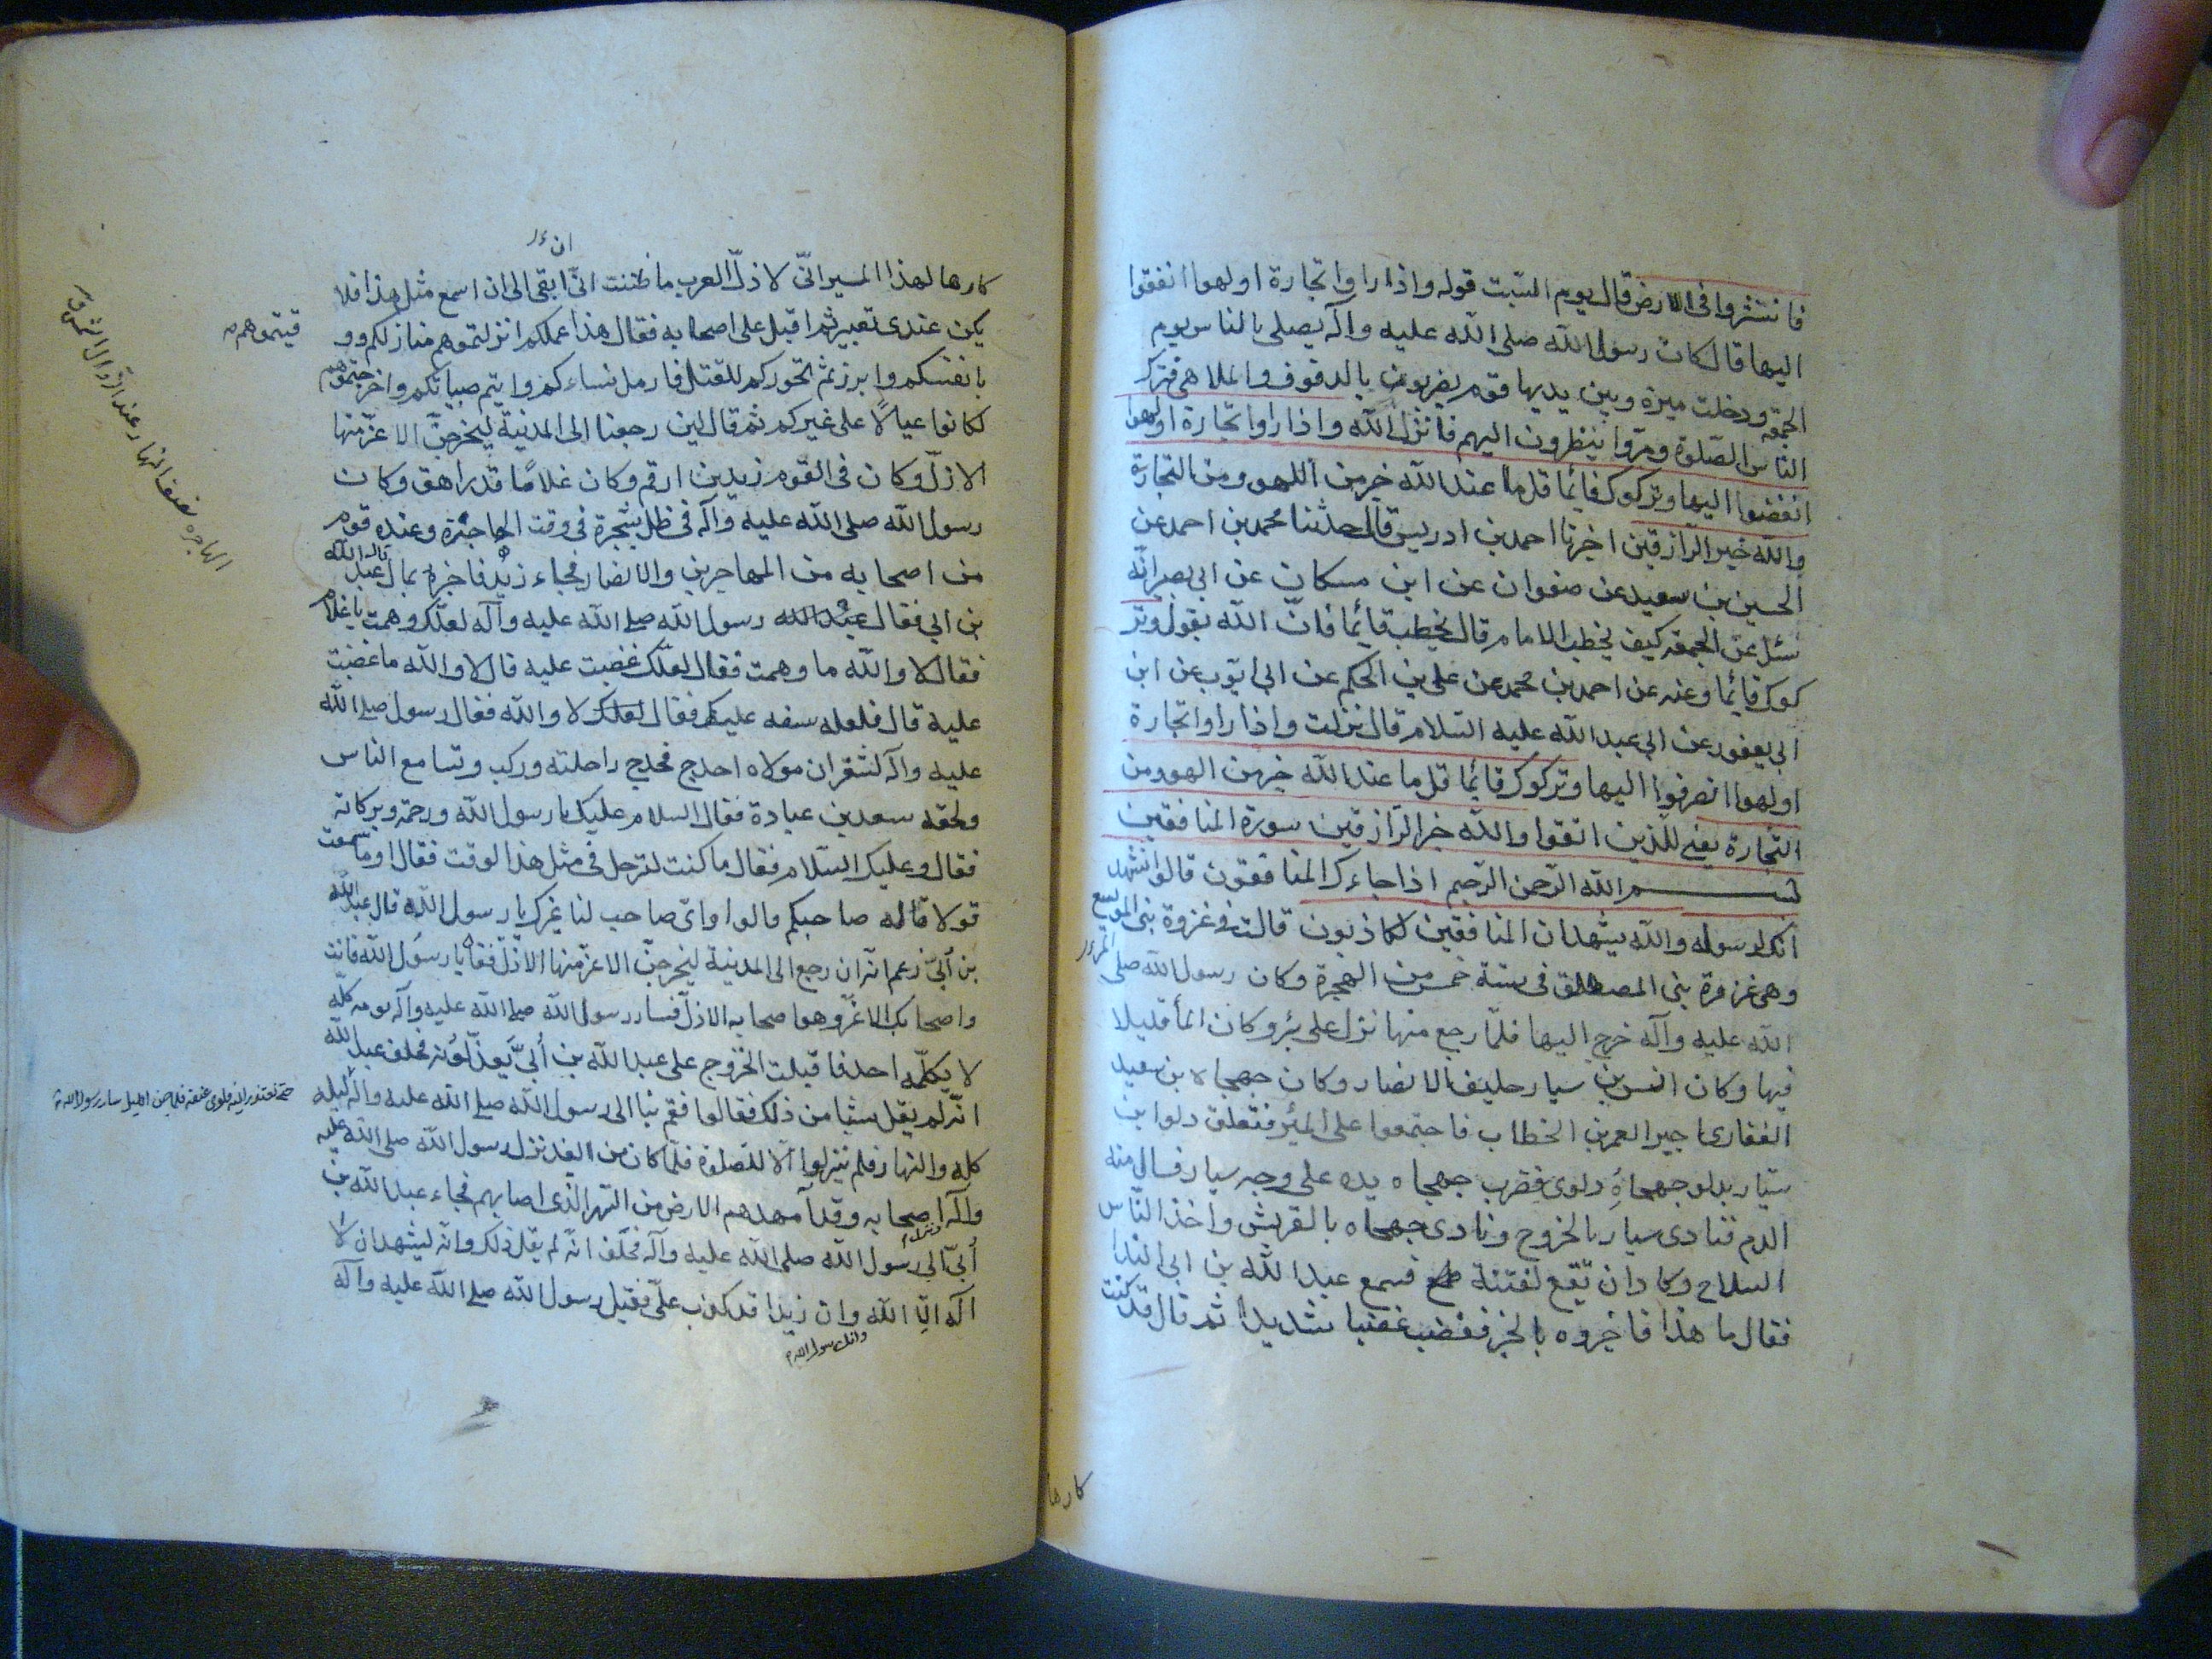 فانتشروا فى الارض قال يوم السبت قوله واذا راوا تجارة او لهوا انفقوا
اليها قال كان رسول الله صلى الله عليه وآله يصلى بالناس يوم
الجمعة ودخلت ميرة وبين يديها قوم يضربون بالدفوف والملاهى فترك
الناس الصّلوة ومرّوا ينظرون اليهم فانزل الله واذا راوا تجارة او لهوا
انفضوا اليها وتركوك قائما قل ما عند الله خير من اللهو ومن التجارة
والله خير الرازقين اخبرنا احمد بن ادريس قال حدثنا محمد بن احمد عن
الحسين بن سعيد عن صفوان عن ابن مسكان عن ابى بصير انّه
سئل عن الجمعة كيف يخطب الامام قال يخطب قائما فانّ الله يقول وتر
كوك قائما وعنه عن احمد بن محمد عن على بن الحكم عن ابى ايّوب عن ابن
ابى يعفور عن ابى عبد الله عليه السّلام قال نزلت واذا راوا تجارة
او لهوا انصرفوا اليها وتركوك قائما قل ما عند الله خير من اللهو ومن
التجارة يعنى للذين اتقوا والله خير الرّازقين سورة المنافقين
بسم الله الرّحمن الرّحيم اذا جاءك المنافقون قالوا نشهد
انك لرسوله والله يشهد ان المنافقين لكاذبون قالت فى غزوة بنى المريسيع
وهى غزوة بنى المصطلق فى سنة خمس من الهجرة وكان رسول الله صلى
الله عليه وآله خرج اليها فلمّا رجع منها نزل على بئر وكان الماء قليلا
فيها وكان انس بن سيار حليف الانصار وكان جهجاه بن سعيد
الغفارى اجيرا لعمر بن الخطاب فاجتمعوا على البئر فتعلق دلو ابن
سيّار بدلو جهجاه دلوى فضرب جهجاه يده على وجه سيار فسال منه
الدم فنادى سيار بالخزرج ونادى جهجاه بالقريش واخذ الناس
السلاح وكاد ان تقع لفتنة فسمع عبد الله بن ابى الندا
فقال ما هذا فاخبروه بالخبر فغضب غضبا شديدا ثم قال قد كنت
كارها
ان
كارها لهذا المسير انّى لاذلّ العرب ما ظننت انّى ابقى الى ان اسمع مثل هذا فلا
يكن عندى تعبير ثم اقبل على اصحابه فقال هذا عملكم انزلتموهم منازلكم وو
قيتموهم
بانفسكم وابرزتم نحوركم للقتل فارمل نساءكم وايتم صبيانكم واخرجتموهم
لكانوا عيالاً على غيركم ثم قال لئن رجعنا الى المدينة ليخرجنّ الاعزّ منها
الاذلّ وكان فى القوم زيد بن ارقم وكان غلامًا قد راهق وكان
رسول الله صلى الله عليه وآله فى ظل شجرة فى وقت الهاجرة وعنده قوم
الهاجره نصف النهار عند زوال الشمس ق
من اصحابه من المهاجرين والانصار فجاء زيد فاخبره بما قال عبد الله
بن ابى فقال رسول الله صلى الله عليه وآله لعلّك وهمت يا غلام
فقال لا والله ما وهمت فقال لعلّك غضبت عليه قال لا والله ما غضبت
عليه قال فلعله سفه عليك فقال لا والله فقال رسول صلى الله
عليه وآله لشقران مولاه احدج فحدج راحلته وركب وتسامع الناس
ولحقه سعد بن عبادة فقال السلام عليك يا رسول الله ورحمة وبركاته
فقال وعليك السّلام فقال ما كنت لترحل فى مثل هذا الوقت فقال اوما سمعت
قولا قاله صاحبكم قالوا واىّ صاحب لنا غيرك يا رسول الله قال عبد الله
بن أبىّ زعم انّه ان رجع الى المدينة ليخرجنّ الاعزّ منها الاذلّ فقال يا رسول الله فانت
واصحابك الاعزّ وهو اصحابه الاذلّ فسار رسول الله صلى الله عليه وآله يومه كلّه
لا يكلّمه احد فاقبلت الخزرج على عبد الله بن أبىّ يعذلونه فحلف عبد الله
انّه لم يقل شيئا من ذلك فقالوا فقم بنا الى رسول الله صلى الله عليه وآله ليله
حتى نعتذر اليه فلوى عنقه فلما جن الليل سار رسول الله
كله والنهار فلم ينزلوا الّا للصّلوة فلمّا كان من الغد نزل رسول الله صلى الله عليه
وآله ونزل اصحابه وقد امهدهم الارض من السّهر الّذى اصابهم فجاء عبد الله بن
أبىّ الى رسول الله صلى الله عليه وآله فحلف انّه لم يقل ذلك وانّه ليشهد ان لا
اله الّا الله وان زيدا قد كذب علىّ فقبل رسول الله صلى الله عليه وآله
وانك رسول الله